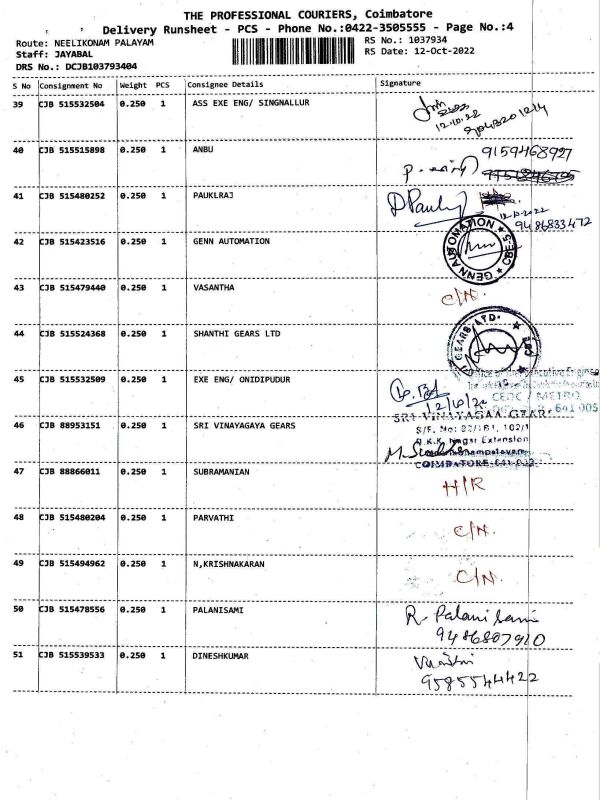 THE PROFESSIONAL COURIERS, Coimbatore
Delivery Runsheet - PCS - Phone No.:0422-3505555 - Page No.:4
Route: NEELIKONAM PALAYAM
RS No.: 1037934
Staff: JAYABAL
RS Date: 12-Oct-2022
DRS No.: DCJB103793404
S No Consignment No Weight PCS Consignee Details Signature
39 CJB 515532504 0.250 1 ASS EXE ENG/ SINGNALLUR
12.10.22
40 CJB 515515898 0.250 1 ANBU 9159468927
41 CJB 515480252 0.250 1 PAUKLRAJ D Paulraj
12-10-2022
9486833472
42 CJB 515423516 0.250 1 GENN AUTOMATION GENN AUTOMATION * CBE-5 *
43 CJB 515479440 0.250 1 VASANTHA C/N.
44 CJB 515524368 0.250 1 SHANTHI GEARS LTD GEARS LTD.
45 CJB 515532509 0.250 1 EXE ENG/ ONIDIPUDUR
Office of the Executive Engineer
CEDC / METRO
641 005
12/10/22
46 CJB 88953151 0.250 1 SRI VINAYAGAYA GEARS
SRI VINAYAGAA GEAR
Nagar Extension
COIMBATORE-641
47 CJB 88866011 0.250 1 SUBRAMANIAN H/R
48 CJB 515480204 0.250 1 PARVATHI C/N.
49 CJB 515494962 0.250 1 N,KRISHNAKARAN C/N.
50 CJB 515478556 0.250 1 PALANISAMI R. Palanisami
9486807910
51 CJB 515539533 0.250 1 DINESHKUMAR
9585544422